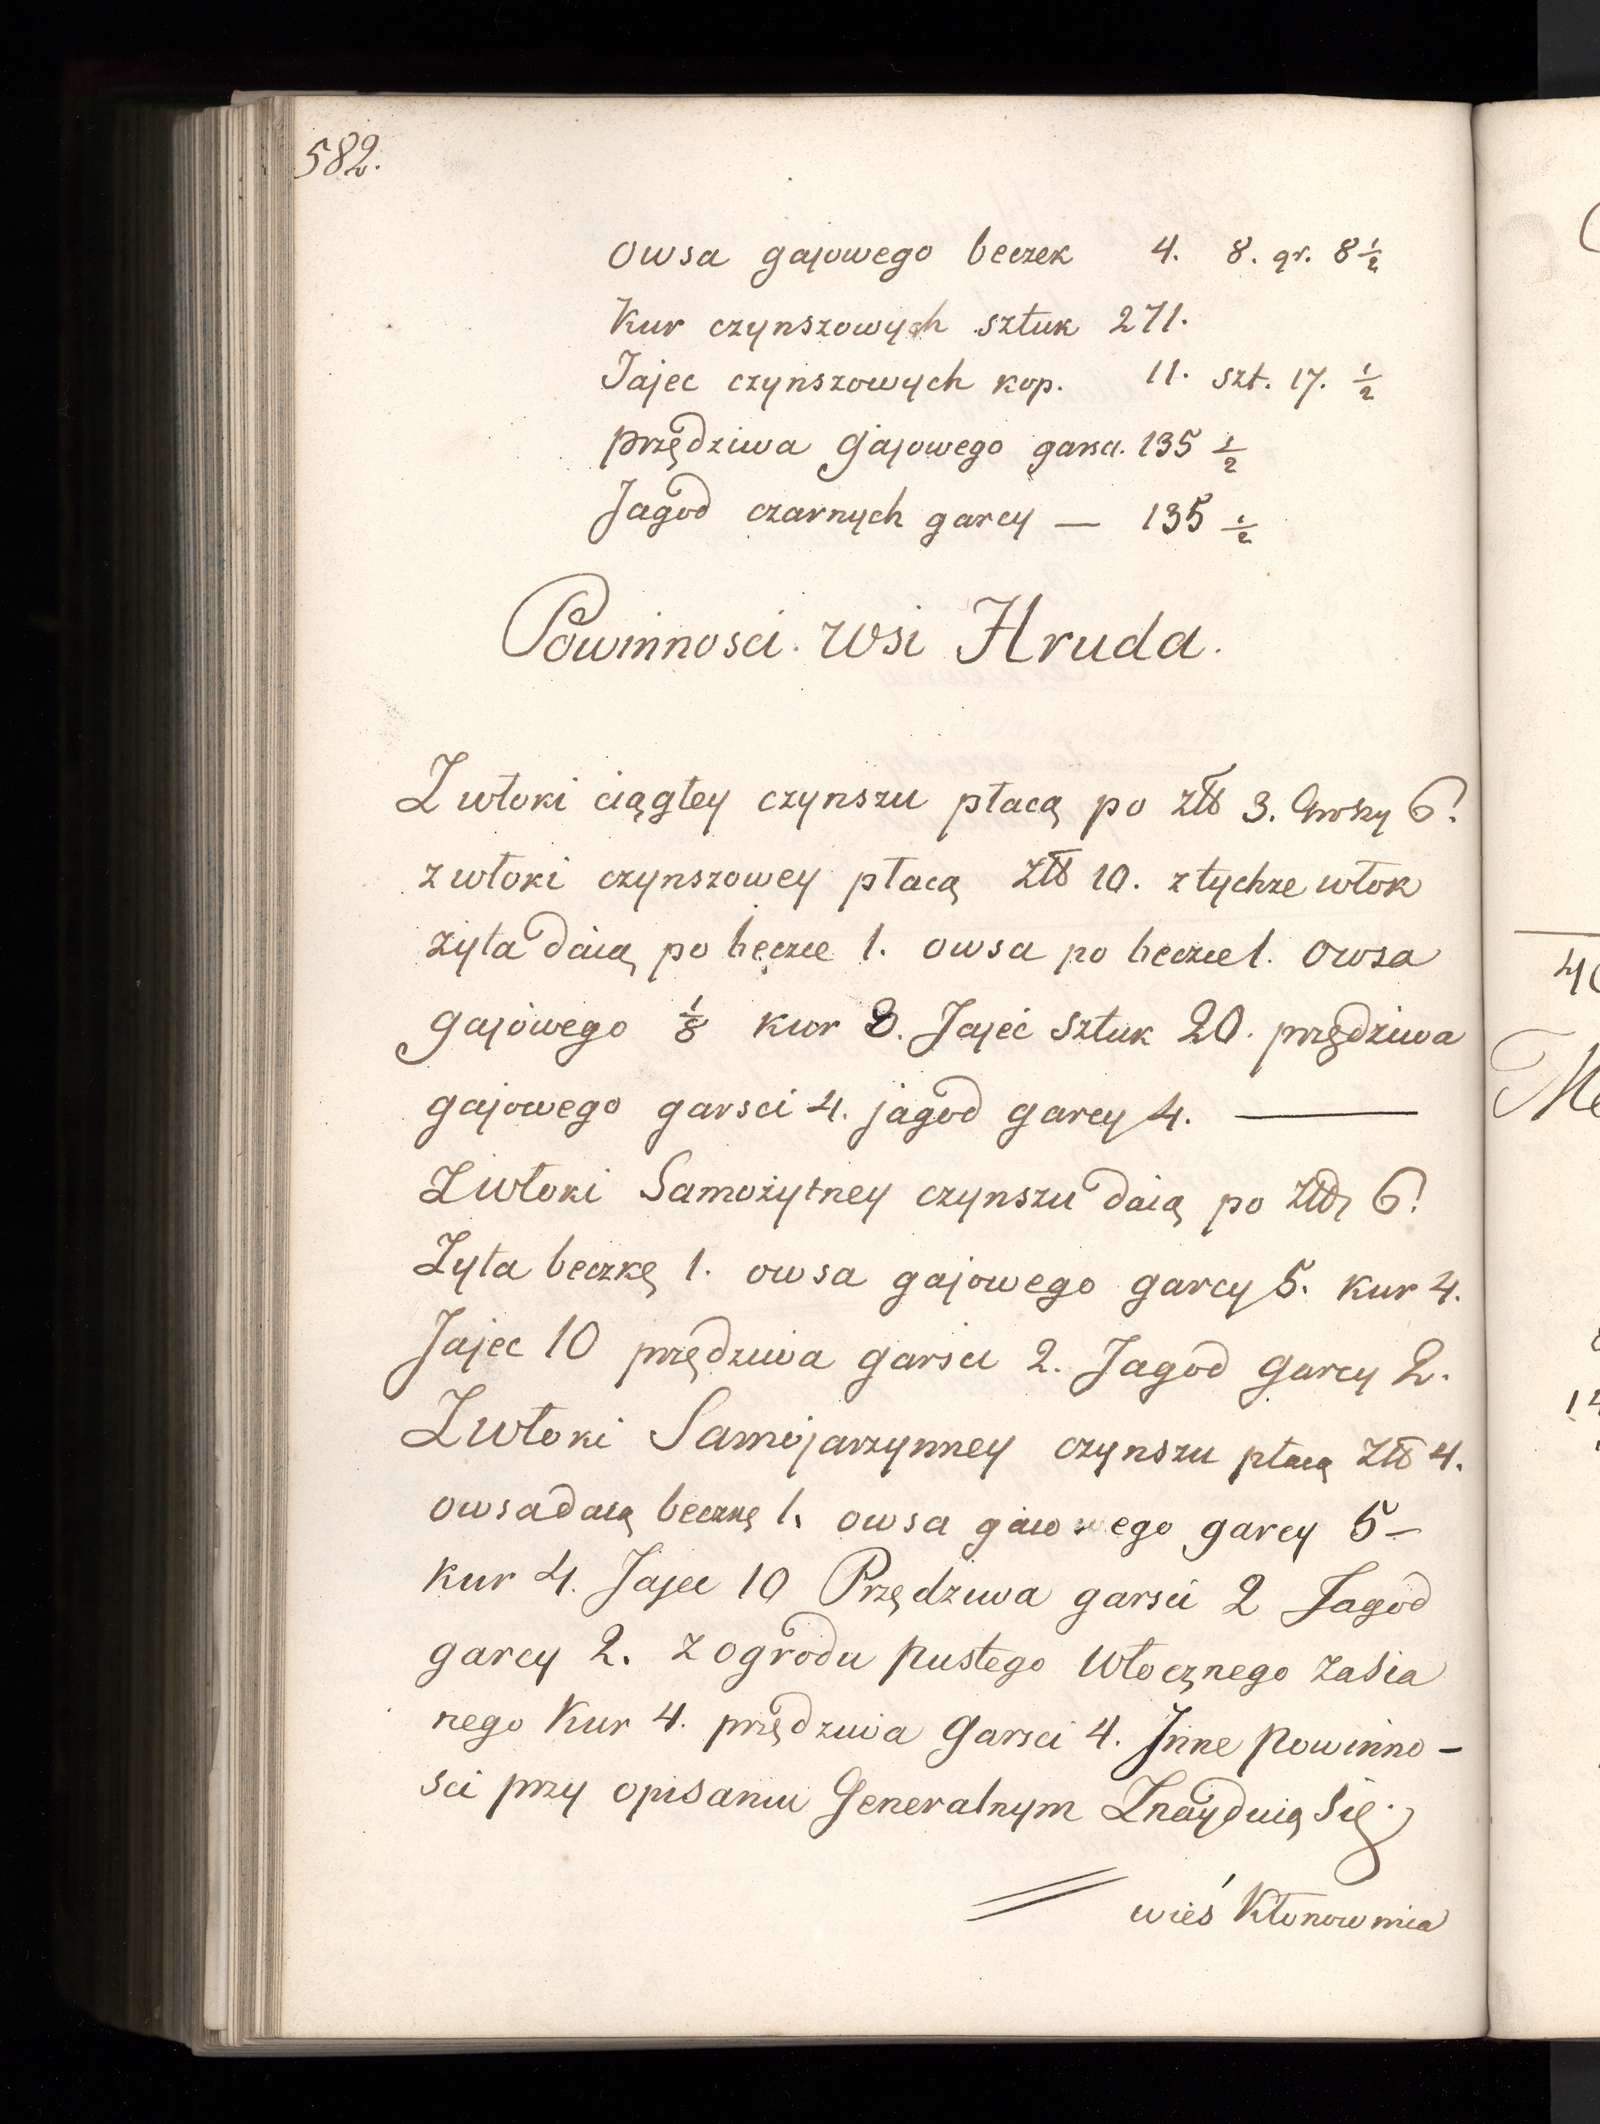 582.
owsa gajowego beczek 4. 8. gr. 8 1/2
Kur czynszowych sztuk 271.
Jajec czynszowych kop. 11. szt. 17. 1/2
przędziwa gajowego garsci. 135 1/2
Jagod czarnych garcy — 135 1/2
Powinnosci wsi Hruda.
Z włoki ciągłey czynszu płacą po złł 3. Groszy 6.
z włoki czynszowey płacą złł 10. z tychze włok
zyta daią po beczce 1. owsa po beczce 1. owsa
gajowego 1/8 kur 8. Jajec sztuk 20. przędziwa
gajowego garsci 4. jagod garcy 4. —
Z włoki Samożytney czynszu daią po złł 6.
Zyta beczkę 1. owsa gajowego garcy 5. kur 4.
Jajec 10 przędziwa garsci 2. Jagod garcy 2.
Z włoki Samojarzynney czynszu płacą złł 4.
owsa daią beczkę 1. owsa gaiowego garcy 5 —
kur 4. Jajec 10 Przędziwa garsci 2 Jagod
garcy 2. z ogrodu pustego włocznego zasia
nego Kur 4. przędziwa Garsci 4. Inne powinno-
sci przy opisaniu Generalnym Znayduią się.
wieś Kłonownica